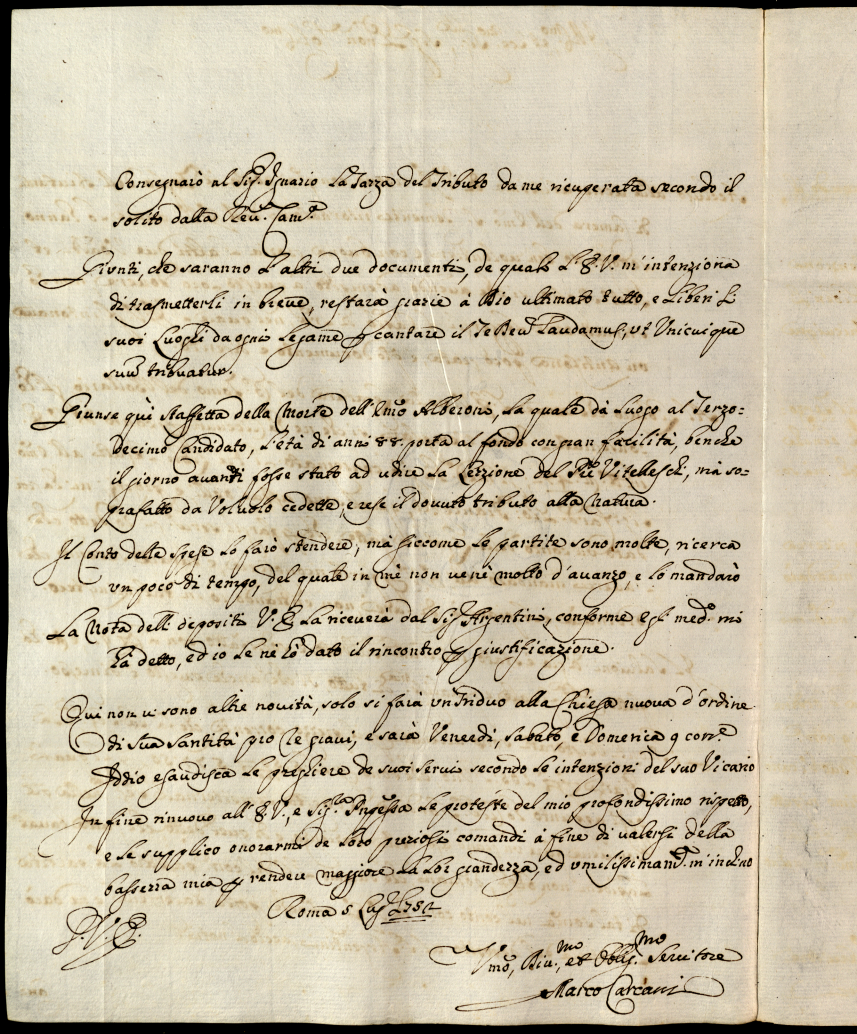 Consegnarò al Sig.r Ignazio La Tarza del Tributo da me ricuperata secondo il
solito dalla Rev.a Cam.a
Gionti, che saranno L'altri due documenti, de quali L'E.V. m'intenziona
di trasmetterli in breve, restarà grazie à Dio ultimato tutto, e Liberi Li
suoi Luoghi da ogni Legame p cantare il Te Deum Laudamus, ut Unicuique
suum tribuatur.
Giunse qui staffetta della Morte dell'Emo Alberoni, La quale dà Luogo al Terzo=
Decimo Candidato, L'età di anni 88. porta al fondo con gran facilità, benche
il giorno avanti fosse stato ad udire La Lezzione del Pre Vitelleschi, mà so=
prafatto da Volvolo cedette, e rese il dovuto tributo alla Natura.
Il Conto delle spese Lo farò stendere, mà siccome Le partite sono molte, ricerca
un poco di tempo, del quale in mè non venè molto d'avanzo, e lo mandarò
La Nota delli depositi V.E. La riceverà dal Sig.r Argentini, conforme egli med.o mi
hà detto, ed io Le nè hò dato il rincontro p giustificazione.
Qui non vi sono altre novità, solo si farà un Triduo alla Chiesa nuova d'ordine
di Sua Santità pro Re gravi, e sarà Venerdì, Sabato, e Domenica 9 corr.e
Iddio esaudisca Le preghiere de suoi servi secondo le intenzioni del suo Vicario
In fine rinuovo all'E.V., e Sig.ra Pnpessa Le proteste del mio profondissimo rispetto,
e Le supplico onorarmi de Loro preziosi comandi à fine di valersi della
bassezza mia p rendere maggiore La Loro grandezza, ed umilissimam.te m'inchino
Roma 5 Lug.o 1752
D.V.E.
Umo, Div.mo, et Oblig.mo Servitore
Marco Carcani